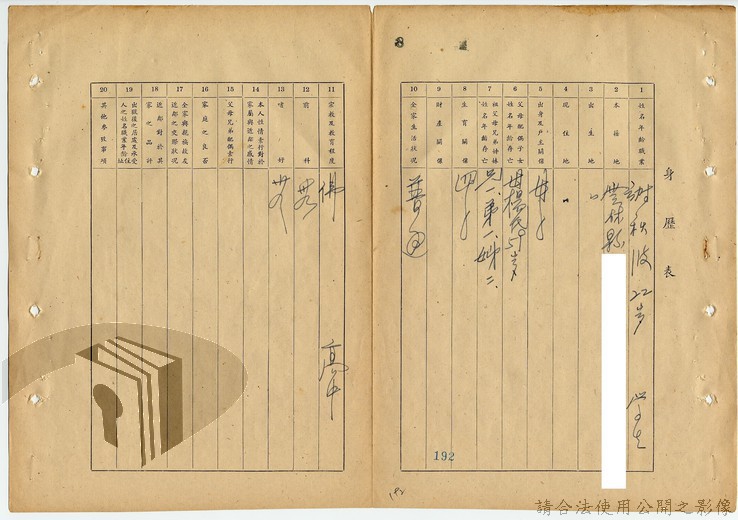 身歷表
1 姓名年齡職業
謝秋波 22岁 学生
2 本籍地
3 出生地
4 現住地
5 出身及戶主關係
6 父母配偶子女姓名年齡存亡
母楊氏 59岁
7 祖父母兄弟姊妹姓名年齡存亡
兄一、弟一、姊二、
8 生育關係
9 財產關係
10 全家生活狀況
普通
192
192
11 宗教及教育程度
佛 高中
12 前科
無
13 嗜好
無
14 本人性情素行對於家屬與近鄰之感情
15 父母兄弟配偶素行
16 家庭之良否
17 全家與親族故友近鄰之交際狀況
18 近鄰對於其家之品評
19 出獄後之居處及承受人之姓名職業年齡住址
20 其他參照事項
請合法使用公開之影像